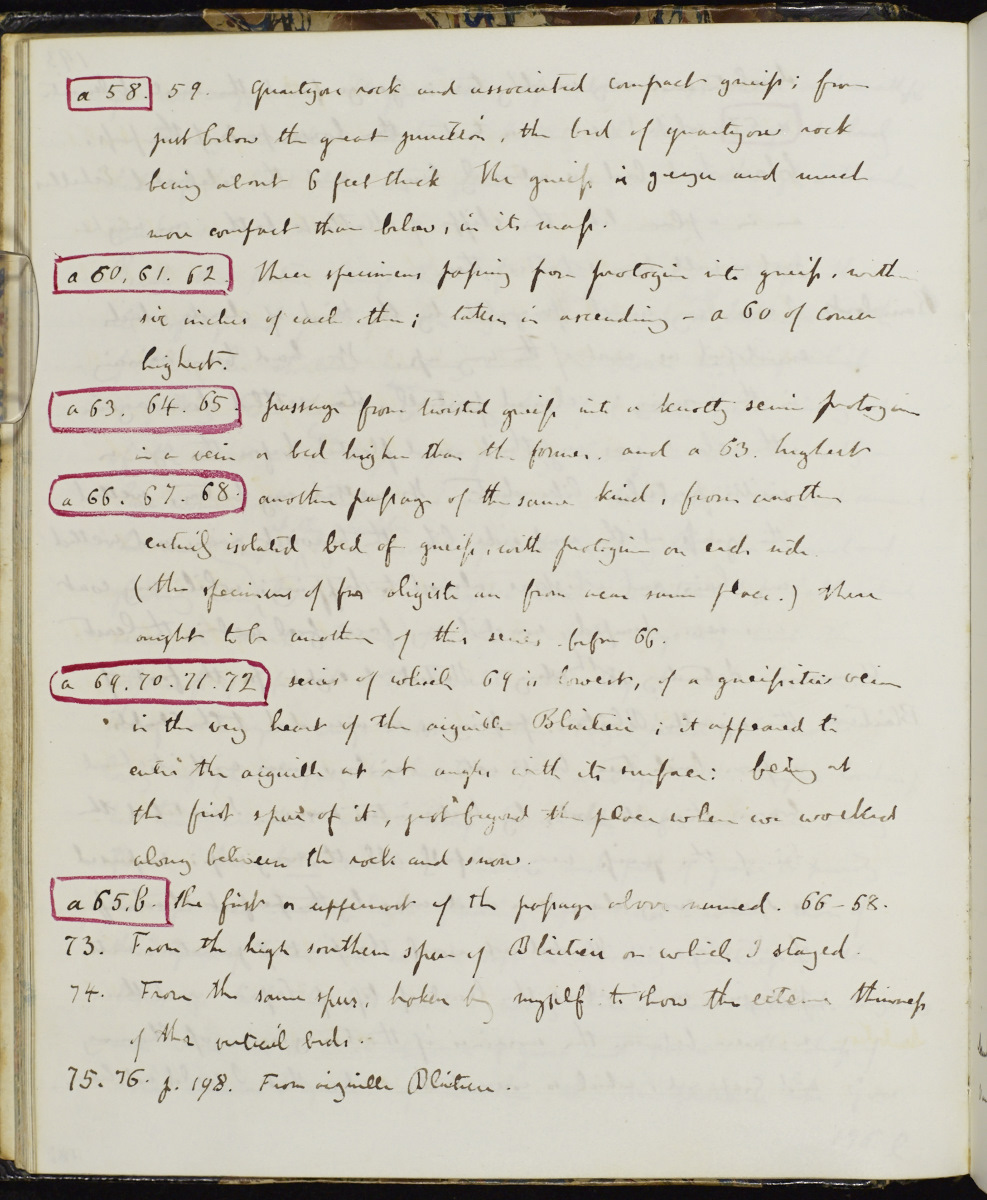 a 58. 59. Quartzose rock and associated compact gneiss; from
just below the great junction, the bed of quartzose rock
being about 6 feet thick The gneiss is greyer and much
more compact than below, in its mass.
a 60. 61. 62. three specimens passing from protogine into gneiss, within
six inches of each other; taken in ascending - a 60 of course
highest.
a 63. 64. 65. passage from twisted gneiss into a knotty semi protogine
in a vein or bed higher than the former. and a 63. highest
a 66. 67. 68. another passage of the same kind, from another
entirely isolated bed of gneiss, with protogine on each side.
(the specimens of oligiste are from near same place.) There
ought to be another of this series before 66.
a 69. 70. 71. 72 series of which 69 is lowest, of a gneissitic vein
in the very heart of the aiguille Blaitiere; it appeared to
enter the aiguille at rt angles with its surface: being at
the first spur of it, just beyond the place where we worked
along between the rock and snow.
a 65. b. The first or uppermost of the passage above named. 66-68.
73. From the high southern spur of Blaitiere on which I stayed.
74. From the same spur, broken by myself to show the extreme thinness
of the vertical beds.
75. 76. p. 198. From aiguille Blaitiere.